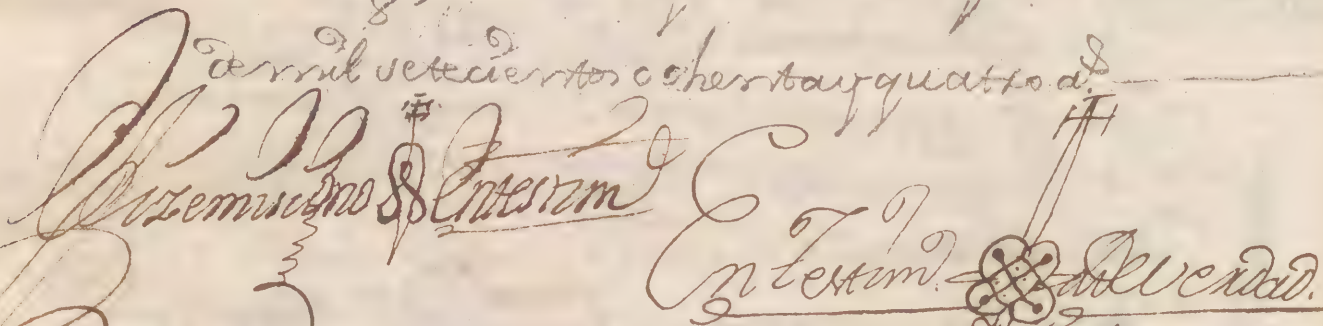 de mil setecientos ochenta y quatro a.s
Hize mi signo En testim.o
En Testim.o de Verdad.